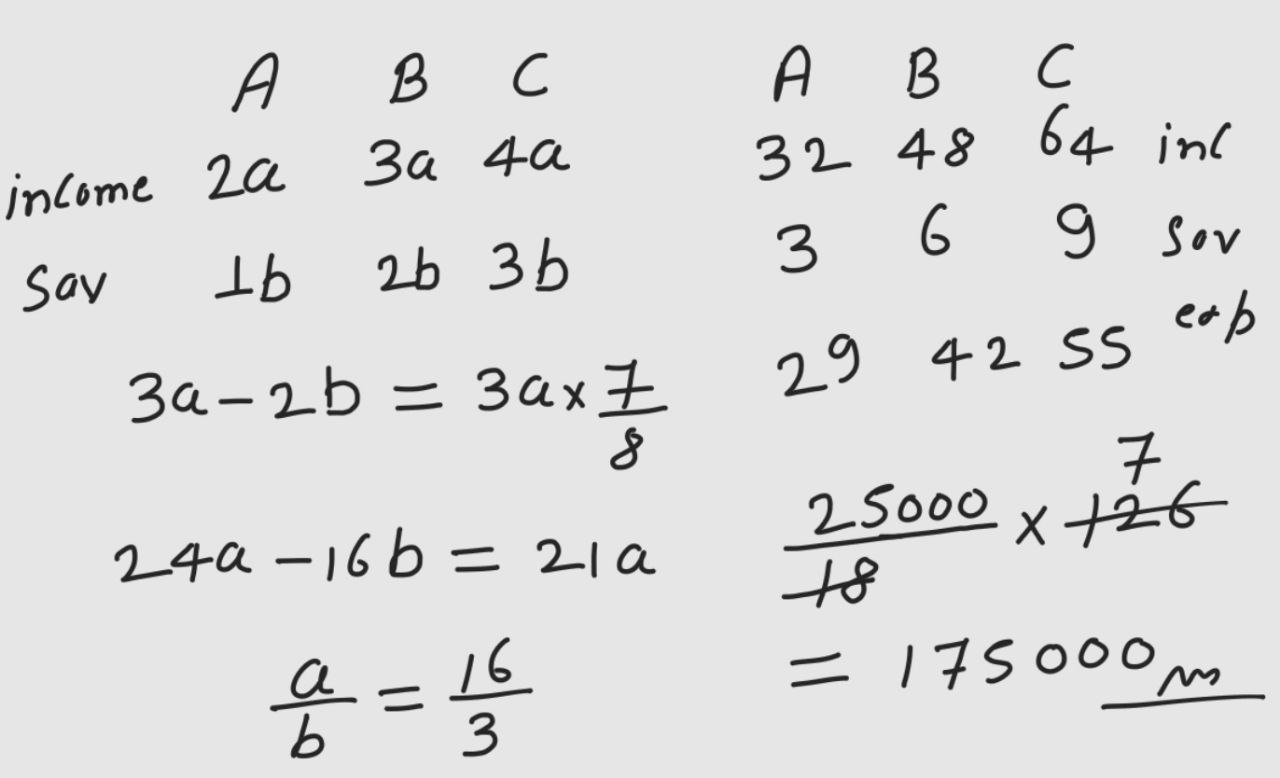 A B C
income 2a 3a 4a
Sav 1b 2b 3b
3a - 2b = 3a x 7/8
24a - 16b = 21a
a/b = 16/3
A B C
32 48 64 inc
3 6 9 Sav
29 42 55 exp
25000/18 x 126 7
= 175000